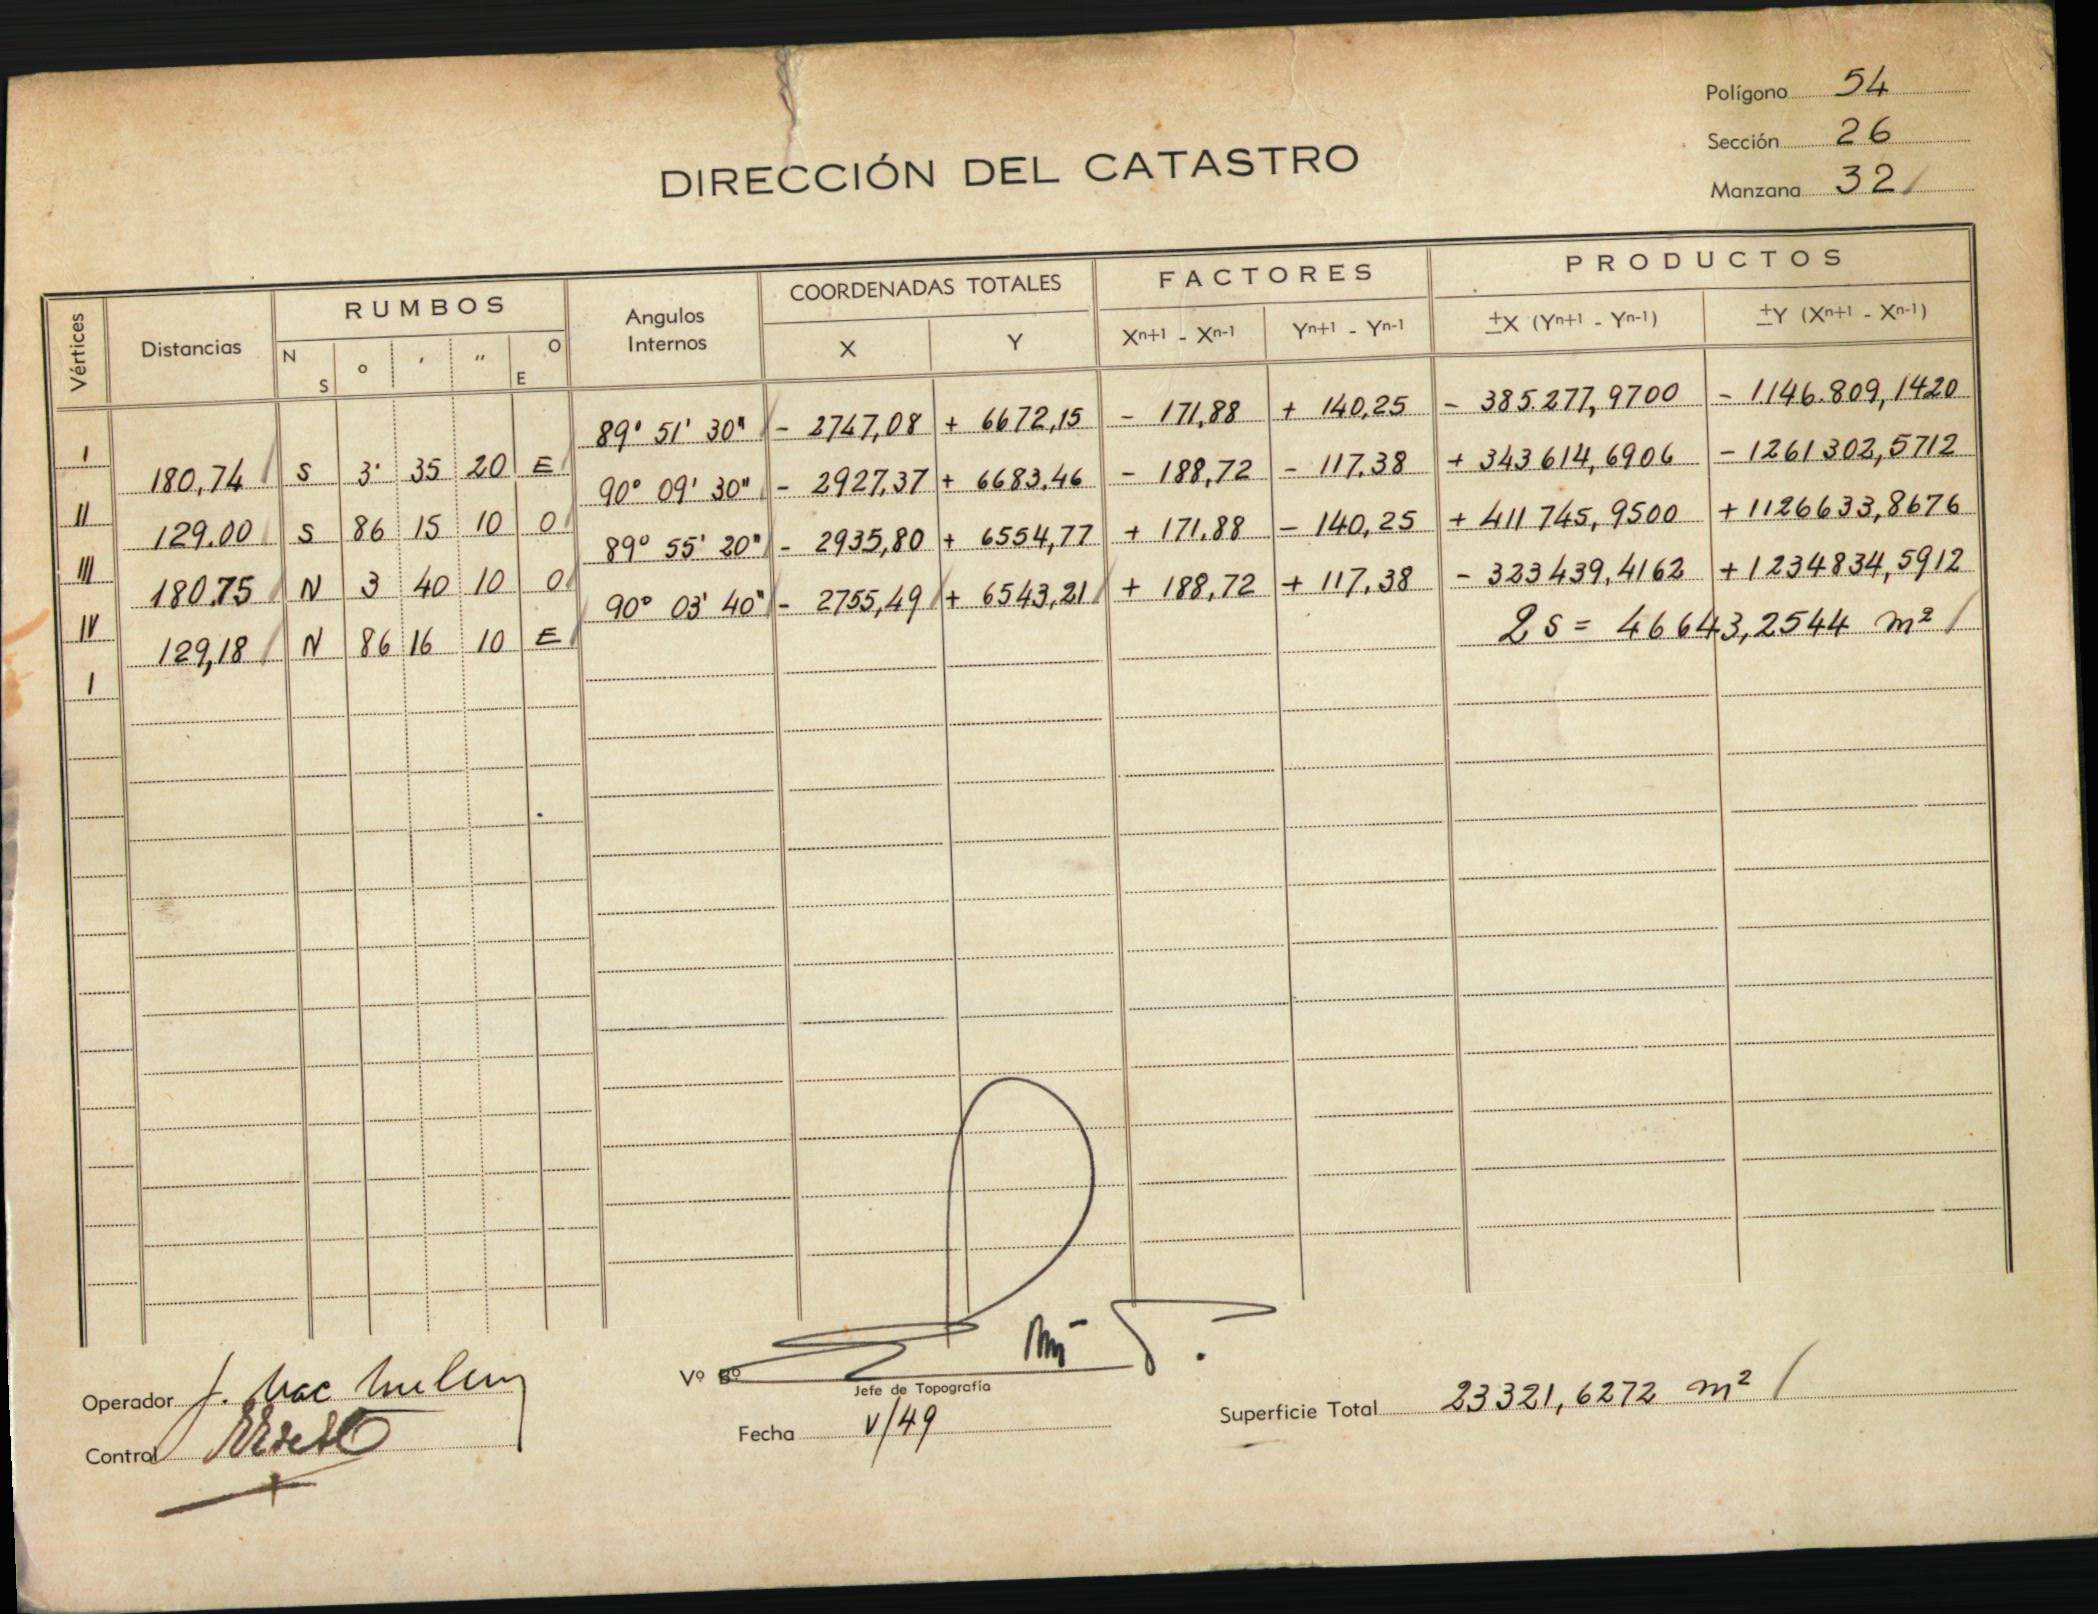 Polígono 54
Sección 26
Manzana 32
DIRECCIÓN DEL CATASTRO
Vértices Distancias RUMBOS Angulos Internos COORDENADAS TOTALES FACTORES PRODUCTOS
N S ° ' " O E X Y Xn+1 - Xn-1 Yn+1 - Yn-1 ±X (Yn+1 - Yn-1) ±Y (Xn+1 - Xn-1)
I 89° 51' 30" - 2747,08 + 6672,15 - 171,88 + 140,25 - 385.277,9700 - 1.146.809,1420
180,74 S 3° 35 20 E
II 90° 09' 30" - 2927,37 + 6683.46 - 188,72 - 117,38 + 343 614,6906 - 1261 302,5712
129.00 S 86 15 10 O
III 89° 55' 20" - 2935,80 + 6554,77 + 171.88 - 140,25 + 411 745,9500 + 1126633,8676
180.75 N 3 40 10 O
IV 90° 03' 40" - 2755,49 + 6543,21 + 188,72 + 117,38 - 323 439,4162 + 1234834,5912
129,18 N 86 16 10 E
I
2 S = 46643,2544 m²
Operador
Control
Vº Bº
Jefe de Topografía
Fecha V/49
Superficie Total 23321,6272 m²